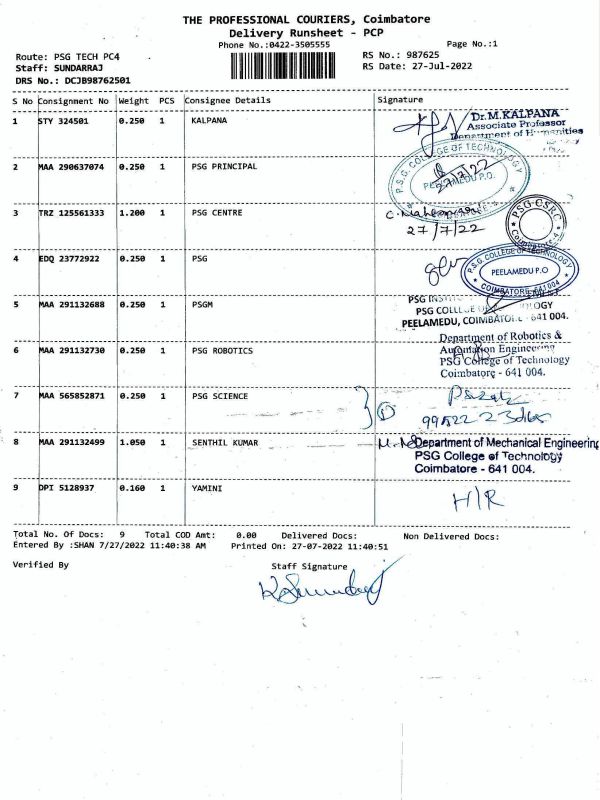 THE PROFESSIONAL COURIERS, Coimbatore
Delivery Runsheet - PCP
Phone No.:0422-3505555
Page No.:1
Route: PSG TECH PC4
Staff: SUNDARRAJ
DRS No.: DCJB98762501
RS No.: 987625
RS Date: 27-Jul-2022
S No Consignment No Weight PCS Consignee Details Signature
1 STY 324501 0.250 1 KALPANA
Dr.M.KALPANA
Associate Professor
Department of Humanities
2 MAA 290637074 0.250 1 PSG PRINCIPAL
P.S.G. COLLEGE OF TECHNOLOGY
27/7/22
PEELAMEDU P.O.
3 TRZ 125561333 1.200 1 PSG CENTRE
27/7/22
PSG-CSRC
Coimbatore-4
4 EDQ 23772922 0.250 1 PSG
P.S.G. COLLEGE OF TECHNOLOGY
PEELAMEDU P.O
COIMBATORE - 641 004
5 MAA 291132688 0.250 1 PSGM
PSG
PSG COLLEGE OF
PEELAMEDU, COIMBATORE - 641 004.
6 MAA 291132730 0.250 1 PSG ROBOTICS
Department of Robotics &
Automation Engineering
PSG College of Technology
Coimbatore - 641 004.
7 MAA 565852871 0.250 1 PSG SCIENCE
8 MAA 291132499 1.050 1 SENTHIL KUMAR
Department of Mechanical Engineering
PSG College of Technology
Coimbatore - 641 004.
9 DPI 5128937 0.160 1 YAMINI
H/R
Total No. Of Docs: 9 Total COD Amt: 0.00 Delivered Docs: Non Delivered Docs:
Entered By :SHAN 7/27/2022 11:40:38 AM Printed On: 27-07-2022 11:40:51
Verified By
Staff Signature